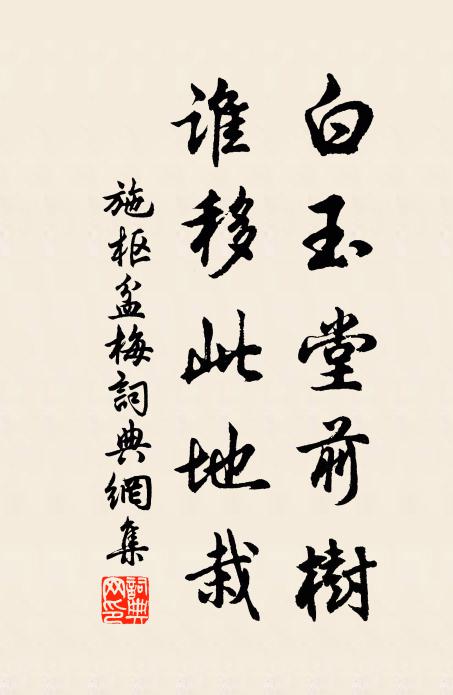 白玉堂前樹
誰移此地栽
施枢盆梅詞典網集
詞典網印